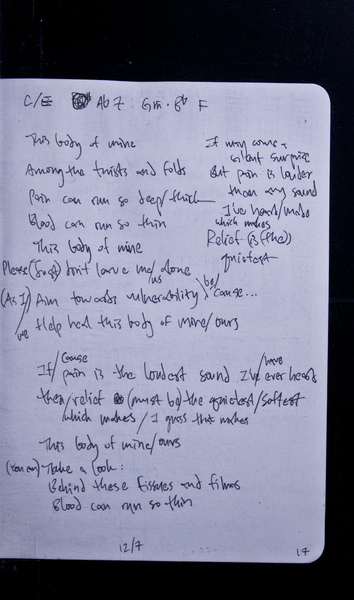 C/E Ab7 Gm · Bb F
This body of mine
Among the twists and folds
Pain can run so deep/thick
Blood can run so thin
This body of mine
Please (Just) don't leave me/us alone
(As I)/we Aim towards vulnerability be/cause...
Help heal this body of mine/ours
It may come a
silent surprise
But pain is louder
than any sound
I've heard/made
which makes
Relief (is (the))
quietest
If/cause pain is the loudest sound I've/have ever heard
then/relief (must be) the quietest/softest
/which makes/I guess that makes
This body of mine/ours
(You can) Take a look:
Behind these tissues and films
Blood can run so thin
12/7
17